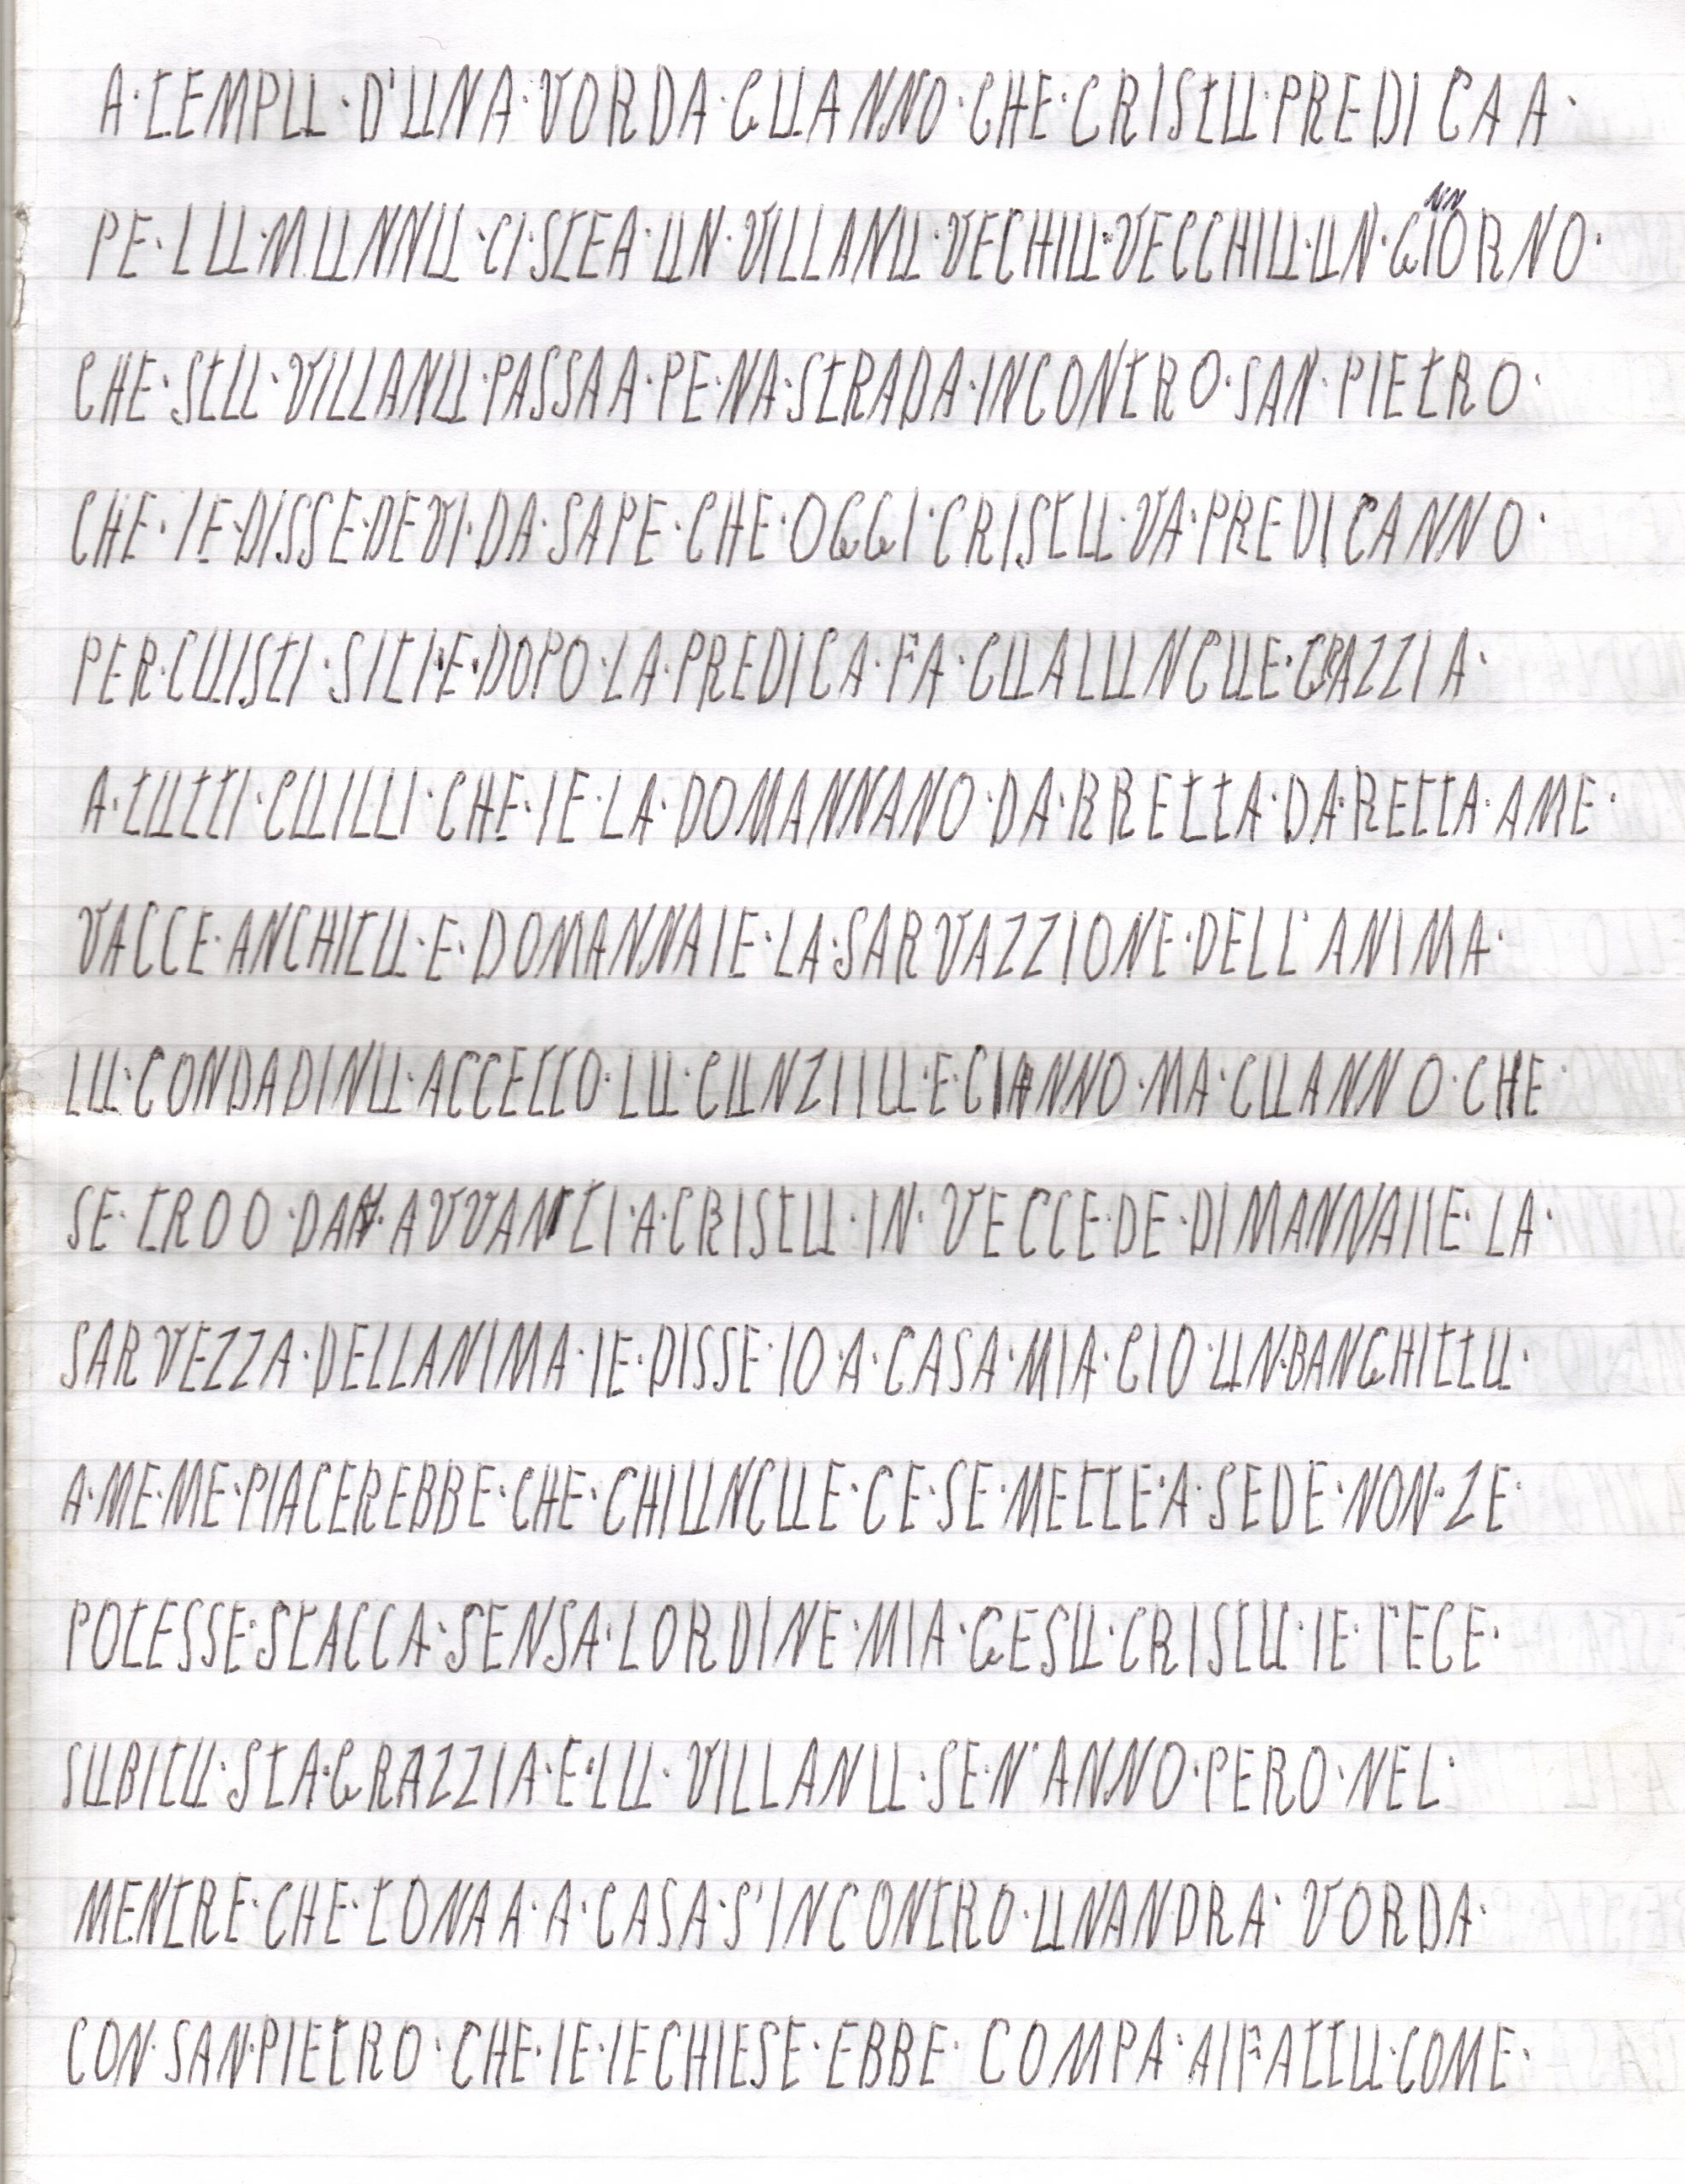 A·TEMPU·D'UNA·VORDA·QUANNO·CHE·CRISTU·PREDICAA·
PE·LU·MUNNU·CI·STEA·UN·VILLANU·VECHIU·VECCHIU·UN·GIORNO·
NN
CHE·STU·VILLANU·PASSAA·PE·NA·STRADA·INCONTRO·SAN·PIETRO·
CHE·IE·DISSE·DEVI·DA·SAPE·CHE·OGGI·CRISTU·VA·PREDICANNO·
PER·CUISTI·SITI·E·DOPO·LA·PREDICA·FA·CUALUNCUE·GRAZZIA·
A·TUTTI·CUILLI·CHE·IE·LA·DOMANNANO·DA·RRETTA·DA·RETTA·AME·
VACCE·ANCHITU·E·DOMANNAIE·LA·SARVAZZIONE·DELL'ANIMA·
LU·CONDADINU·ACCETTO·LU·CUNZIIU·E·CIANNO·MA·CUANNO·CHE·
SE·TROO·DAN·AVVANTI·A·CRISTU·IN·VECCE·DE·DIMANNAIIE·LA·
SARVEZZA·DELLANIMA·IE·DISSE·IO·A·CASA·MIA·CIO·UN·BANGHITTU·
A·ME·ME·PIACEREBBE·CHE·CHIUNCUE·CE·SE·METTE·A·SEDE·NON·ZE·
POTESSE·STACCA·SENSA·LORDINE·MIA·GESU·CRISTU·IE·FECE·
SUBITU·STA·GRAZZIA·E·LU·VILLANU·SE·N'ANNO·PERO·NEL·
MENTRE·CHE·TONAA·A·CASA·S'INCONTRO·UNANDRA·VORDA·
CON·SAN·PIETRO·CHE·IE·IECHIESE·EBBE·COMPA·AIFATTU·COME·